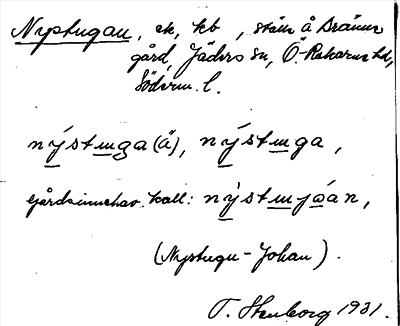 Nystugan, ek, kb, ställe å Bränne
gård, Jäders sn, Ö-Rekarne hd,
Söderm. l.
nýstuga (ä), nýstuga,
gårdsinnehav. kall: nýstujóan,
(Nystugu-Johan).
T. Stenborg 1931.